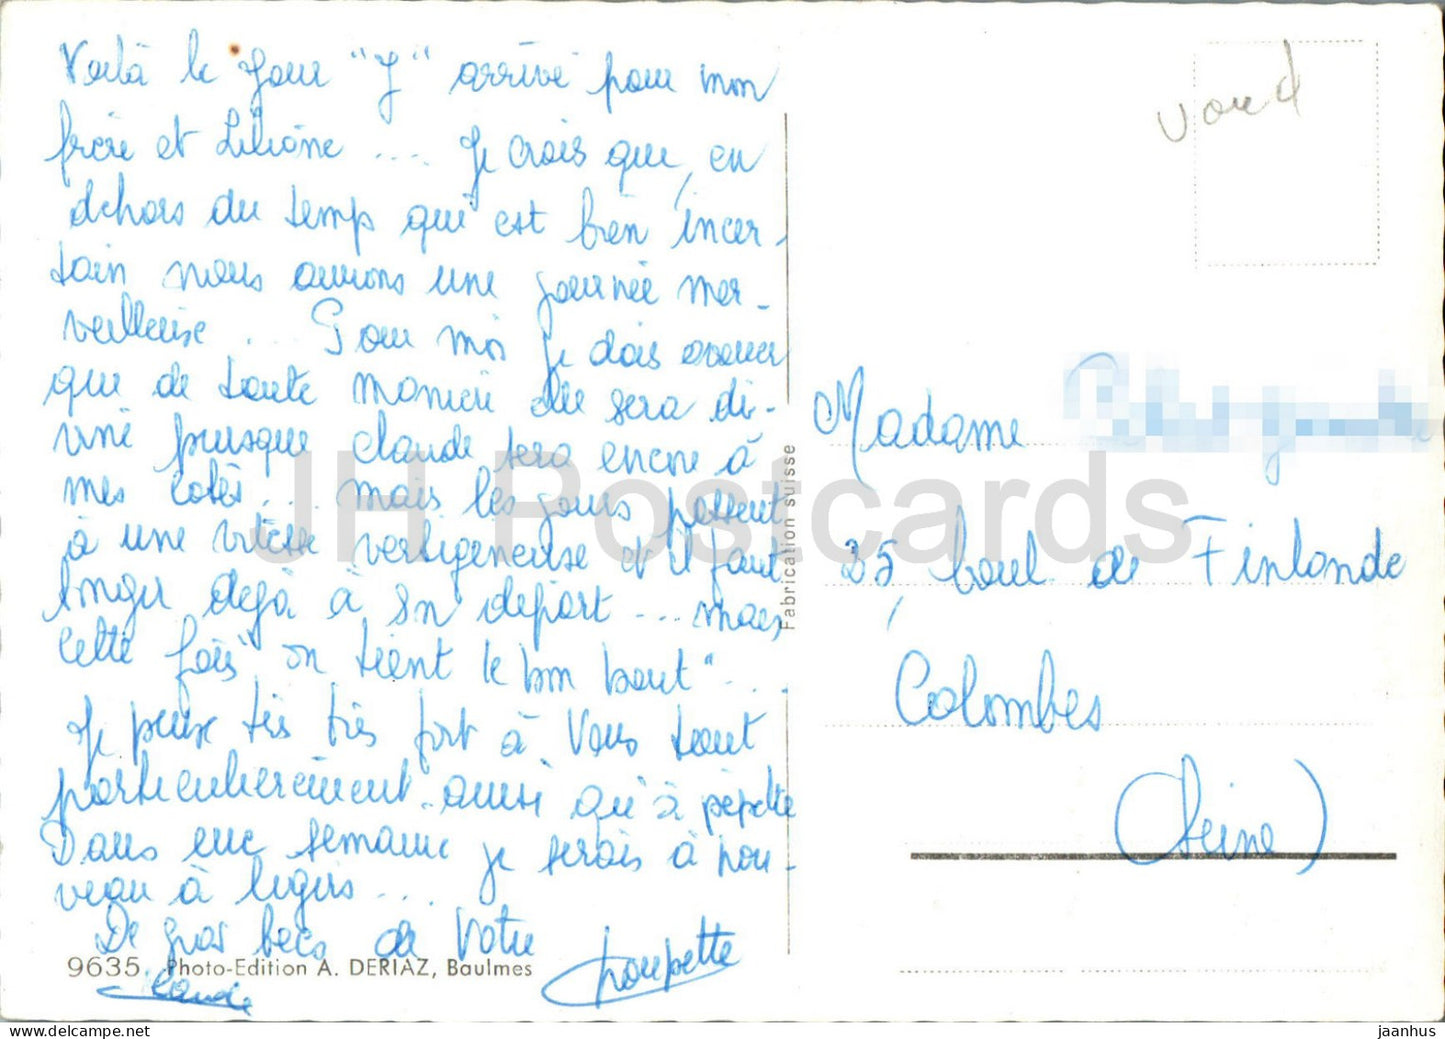 Voilà le Jour "J" arrivé pour mon
frère et Liliane .... Je crois que, en
dehors du temps qui est bien incer-
tain nous aurons une journée mer-
veilleuse ... Pour moi je dois avouer
que de toute manière elle sera di-
vine puisque Claude sera encore à
mes côtés ... mais les jours passent
à une vitesse vertigineuse et il faut
songer déjà à son départ .... mais
cette fois "on tient le bon bout" ....
Je pense très très fort à Vous tout
particulièrement ainsi qu'à pépette
Dans une semaine je serais à nou-
veau à Angers ....
De gros becs de Votre
Poupette
Claude
9635. Photo-Edition A. DERIAZ, Baulmes
Fabrication suisse
Vaud
Madame
35, boul. de Finlande
Colombes
(Seine)
JH Postcards
jaanhus | delcampe.net